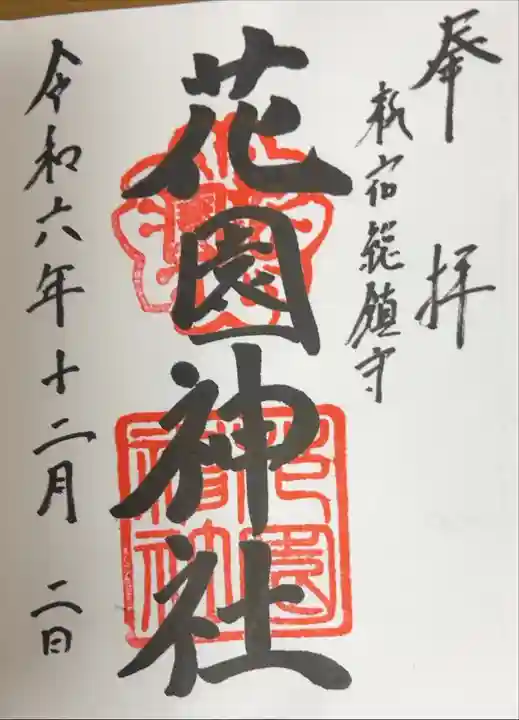 奉拝
新宿総鎮守
花園神社
令和六年十二月二日